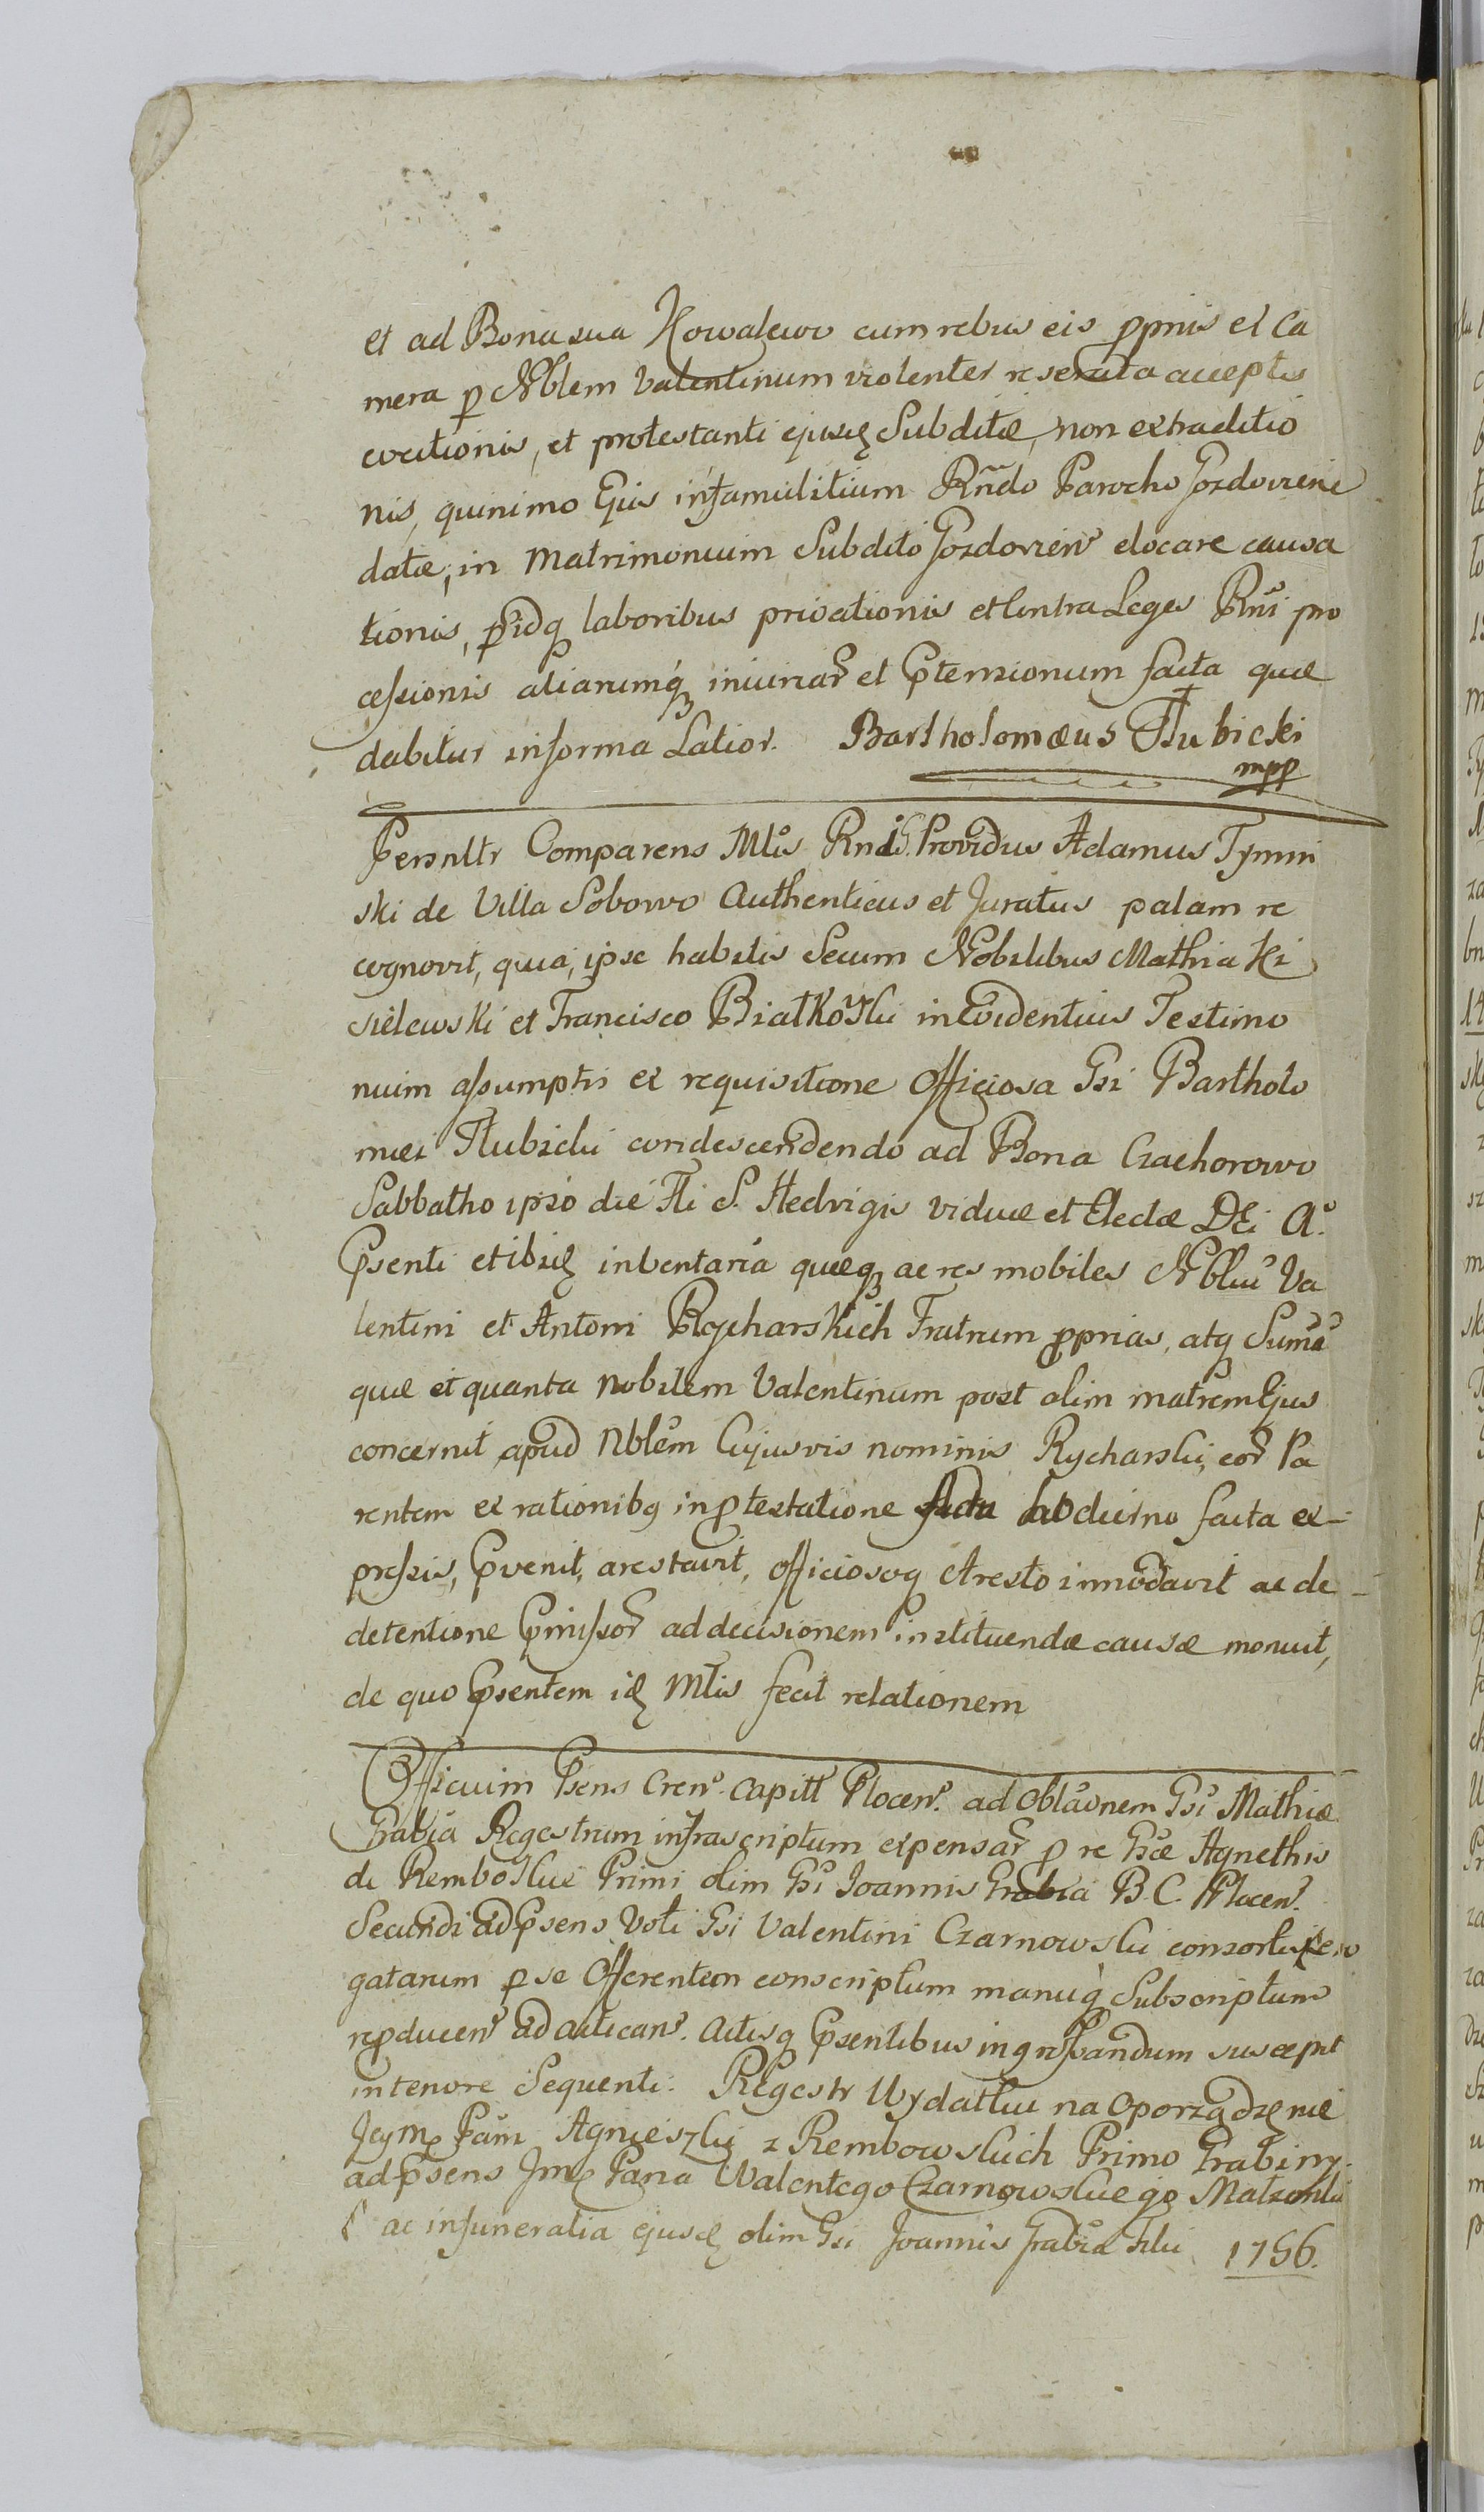 et ad Bona sua Kowalewo cum rebus eis ppriis et Ca
mera p Nblem Valentinum violenter reserata acceptis
cocitionis, et protestanti ejusq Subditæ, non extraditio
nis, quinimo Ejus in famulitium Rñdo Parocho Gozdoviene
datæ, in Matrimonium Subdito Gozdovien elocare causa
tionis, pidq laboribus privationis et Contra Leges Rni pro
cessionis aliarumq iniuriar et Ptensionum facta quæ
dabitur in forma Latior. Bartholomæus Tłubicki
mpp
Personltr Comparens Mltis Rndis Providus Adamus Tymin
ski de Villa Sobowo Authenticus et Juratus palam re
cognovit, quia, ipse habitis Secum Nobilibus Mathia Ki
sielewski et Francisco Białkowski in Evidentius Testimo
nium assumptis ex requisitione Officiosa Gsi Bartholo
mæi Tłubicki condescendendo ad Bona Czachorowo
Sabbatho ipso die Fti S. Hedvigis viduæ et Electæ DEi A°
Psenti et ibidq inventaria quæq ac res mobiles Nbliu Va
lentini et Antoni Rycharskich Fratrum pprias, atq Suma
quæ et quanta Nobilem Valentinum post olim matrem Ejus
concernit apud Nblem Cujusvis nominis Rycharski, eor Pa
rentem ex rationibq in ptestatione hodierno facta ex-
pressis, Pvenit, arestavit, officiosoq Aresto innodavit ac de-
detentione Pmissor ad decisionem instituendæ causæ monuit,
de quo Psentem idq Mltis fecit relationem
Officium Psens Cren. Capitl Plocen. ad Oblaonem Gsi Mathiæ
Grabia Regestrum infrascriptum expensar p re Gsæ Agnethis
de Rembowskie Primi olim Gsi Joannis Grabia B.C. Plocen.
Secundi ad Psens Voti Gsi Valentini Czarnowski consortis ero
gatarum p se Offerentem conscriptum manuq Subscriptum
rpducen ad acticans. Actisq Psentibus ingrossandum suscepit
in tenore Sequenti. Regestr Wydatku na Oporządzenie
Jeym Pani Agnieszki z Rembowskich Primo Grabiny.
ad Psens Jm Pana Walentego Czarnowskiego Małzonki
ac in funeralia ejusdq olim Gsi Joannis Grabia Filii 1756.